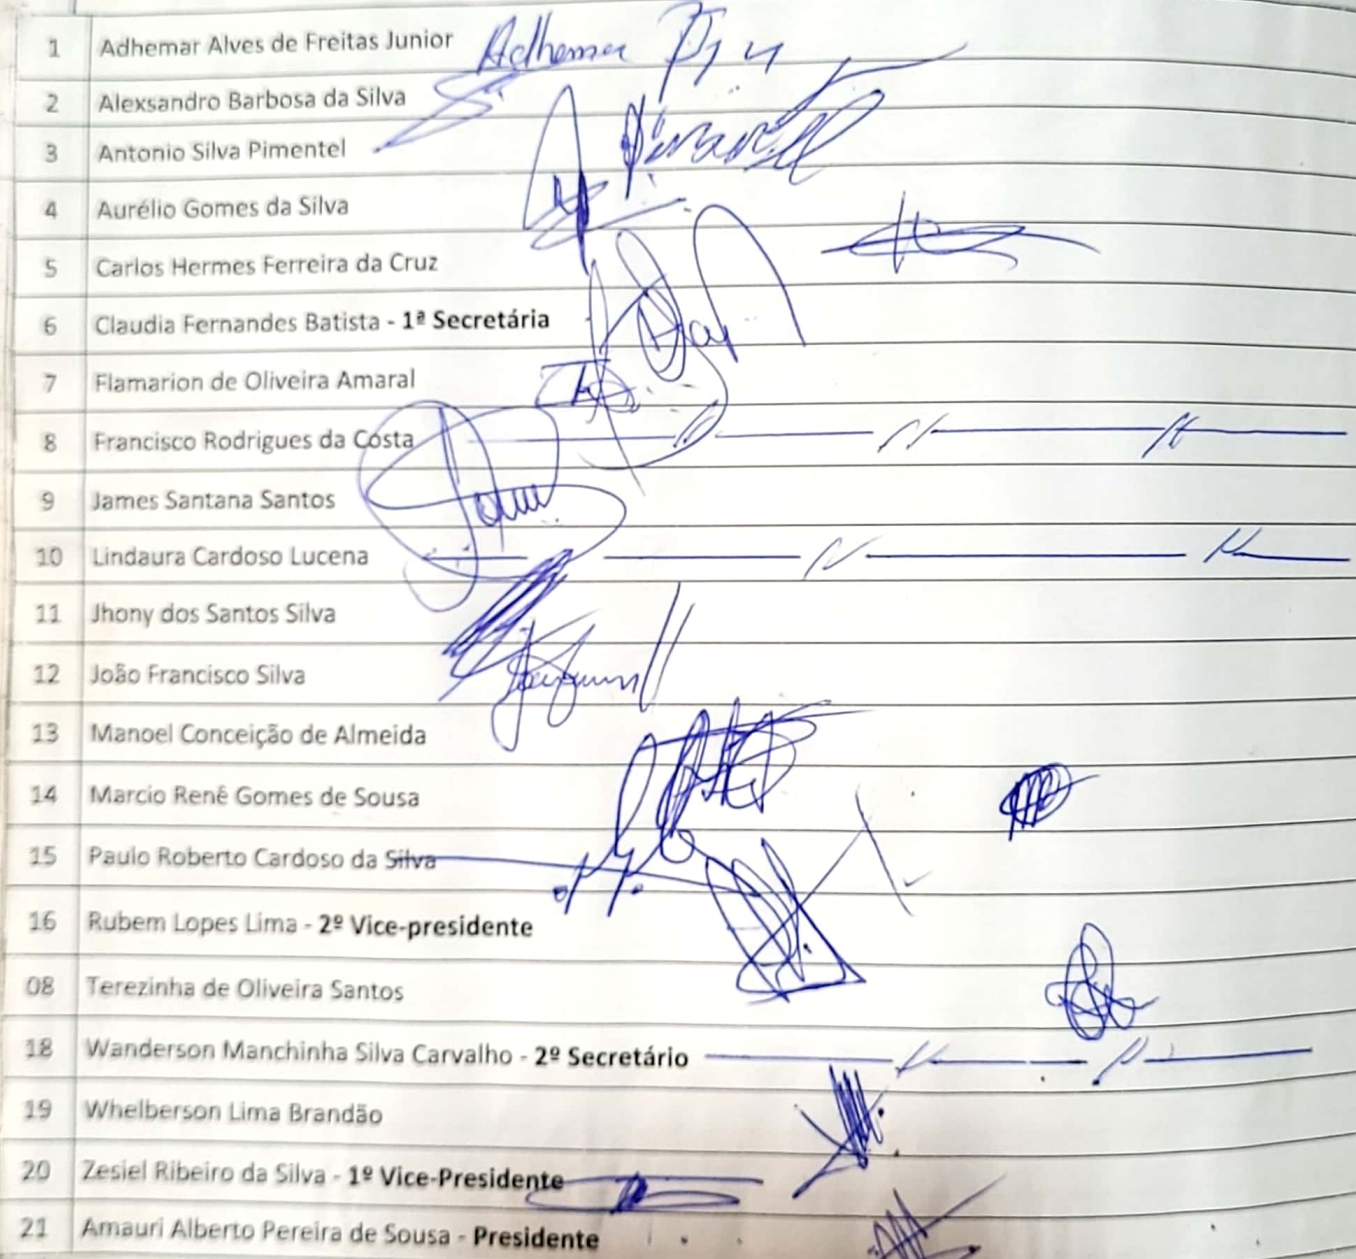 1 Adhemar Alves de Freitas Junior Adhemar
2 Alexsandro Barbosa da Silva
3 Antonio Silva Pimentel
4 Aurélio Gomes da Silva
5 Carlos Hermes Ferreira da Cruz
6 Claudia Fernandes Batista - 1ª Secretária
7 Flamarion de Oliveira Amaral
8 Francisco Rodrigues da Costa
9 James Santana Santos
10 Lindaura Cardoso Lucena
11 Jhony dos Santos Silva
12 João Francisco Silva
13 Manoel Conceição de Almeida
14 Marcio Renê Gomes de Sousa
15 Paulo Roberto Cardoso da Silva
16 Rubem Lopes Lima - 2º Vice-presidente
08 Terezinha de Oliveira Santos
18 Wanderson Manchinha Silva Carvalho - 2º Secretário
19 Whelberson Lima Brandão
20 Zesiel Ribeiro da Silva - 1º Vice-Presidente
21 Amauri Alberto Pereira de Sousa - Presidente